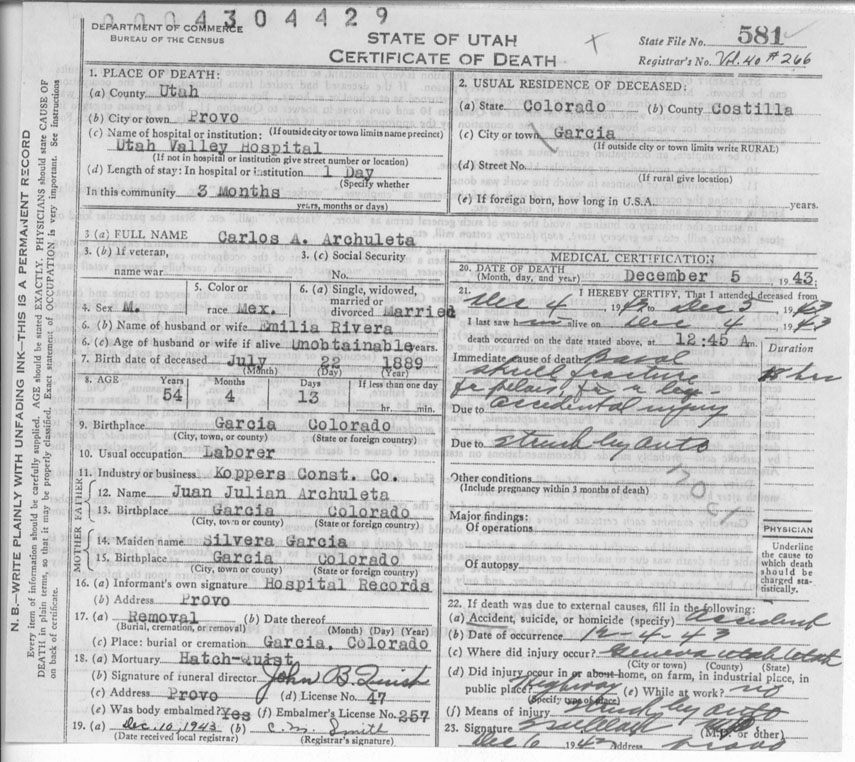 0004304429
DEPARTMENT OF COMMERCE
BUREAU OF THE CENSUS
STATE OF UTAH
CERTIFICATE OF DEATH
State File No. 581
Registrar's No. Vol. 40 # 266
N. B.—WRITE PLAINLY WITH UNFADING INK—THIS IS A PERMANENT RECORD
Every item of information should be carefully supplied. AGE should be stated EXACTLY. PHYSICIANS should state CAUSE OF
DEATH in plain terms, so that it may be properly classified. Exact statement of OCCUPATION is very important. See instructions
on back of certificate.
1. PLACE OF DEATH:
(a) County Utah
(b) City or town Provo
(c) Name of hospital or institution: (If outside city or town limits name precinct)
Utah Valley Hospital
(If not in hospital or institution give street number or location)
(d) Length of stay: In hospital or institution 1 Day
(Specify whether
In this community 3 Months
years, months or days)
2. USUAL RESIDENCE OF DECEASED:
(a) State Colorado (b) County Costilla
(c) City or town Garcia
(If outside city or town limits write RURAL)
(d) Street No.
(If rural give location)
(e) If foreign born, how long in U.S.A. years.
3 (a) FULL NAME Carlos A. Archuleta
3. (b) If veteran, 3. (c) Social Security
name war No.
4. Sex M. 5. Color or race Mex. 6. (a) Single, widowed, married or divorced Married
6. (b) Name of husband or wife Emilia Rivera
6. (c) Age of husband or wife if alive Unobtainable years.
7. Birth date of deceased July 22 1889
(Month) (Day) (Year)
8. AGE Years Months Days If less than one day
54 4 13 hr. min.
9. Birthplace Garcia Colorado
(City, town, or county) (State or foreign country)
10. Usual occupation Laborer
11. Industry or business Koppers Const. Co.
FATHER
12. Name Juan Julian Archuleta
13. Birthplace Garcia Colorado
(City, town or county) (State or foreign country)
MOTHER
14. Maiden name Silvera Garcia
15. Birthplace Garcia Colorado
(City, town or county) (State or foreign country)
16. (a) Informant's own signature Hospital Records
(b) Address Provo
17. (a) Removal (b) Date thereof
(Burial, cremation, or removal) (Month) (Day) (Year)
(c) Place: burial or cremation Garcia, Colorado
18. (a) Mortuary Hatch-Quist
(b) Signature of funeral director John B. Quist
(c) Address Provo (d) License No. 47
(e) Was body embalmed? Yes (f) Embalmer's License No. 257
19. (a) Dec. 10, 1943 (b) C. M. Smith
(Date received local registrar) (Registrar's signature)
MEDICAL CERTIFICATION
20. DATE OF DEATH
(Month, day, and year) December 5 , 1943.
21. I HEREBY CERTIFY, That I attended deceased from
Dec 4 , 1943 to Dec 5 , 1943
I last saw him alive on Dec 4 , 1943
death occurred on the date stated above, at 12:45 Am.
Duration
Immediate cause of death Basal
skull fracture 18 hrs
fx pelvis, fx leg
Due to accidental injury
Due to struck by auto
Other conditions
(Include pregnancy within 3 months of death)
Major findings:
Of operations
Of autopsy
PHYSICIAN
Underline
the cause to
which death
should be
charged sta-
tistically.
22. If death was due to external causes, fill in the following:
(a) Accident, suicide, or homicide (specify) Accident
(b) Date of occurrence 12-4-43
(c) Where did injury occur? Geneva Utah Utah
(City or town) (County) (State)
(d) Did injury occur in or about home, on farm, in industrial place, in
public place? Highway (e) While at work? no
(Specify type of place)
(f) Means of injury struck by auto
23. Signature (M.D. or other)
Dec 6 194 Address Provo